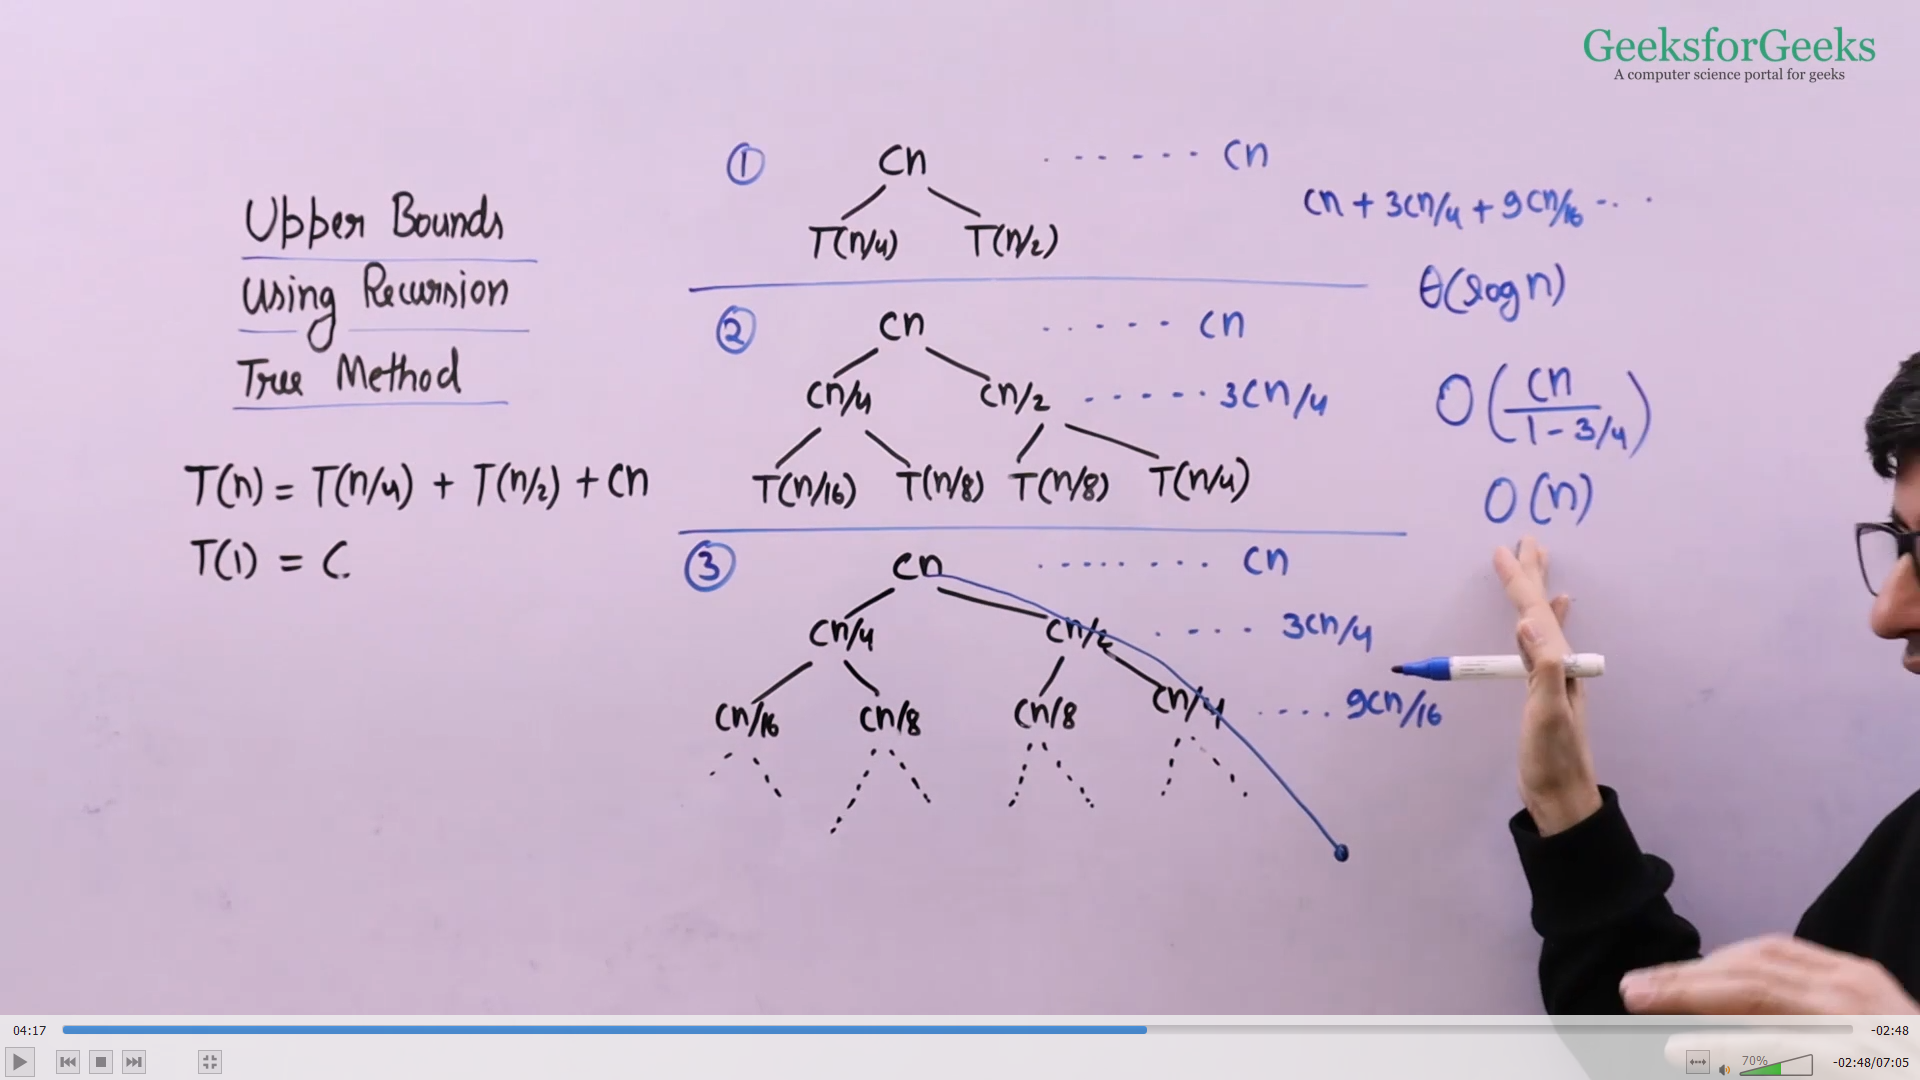 GeeksforGeeks
A computer science portal for geeks
Upper Bounds
Using Recursion
Tree Method
T(n) = T(n/4) + T(n/2) + Cn
T(1) = C.
① Cn ...... Cn
T(n/4) T(n/2)
② Cn ..... Cn
Cn/4 Cn/2 ..... 3Cn/4
T(n/16) T(n/8) T(n/8) T(n/4)
③ Cn ....... Cn
Cn/4 Cn/2 .... 3Cn/4
Cn/16 Cn/8 Cn/8 Cn/4 .... 9Cn/16
Cn + 3Cn/4 + 9Cn/16 ....
θ(log n)
O(Cn/(1 - 3/4))
O(n)
04:17
-02:48
70%
-02:48/07:05